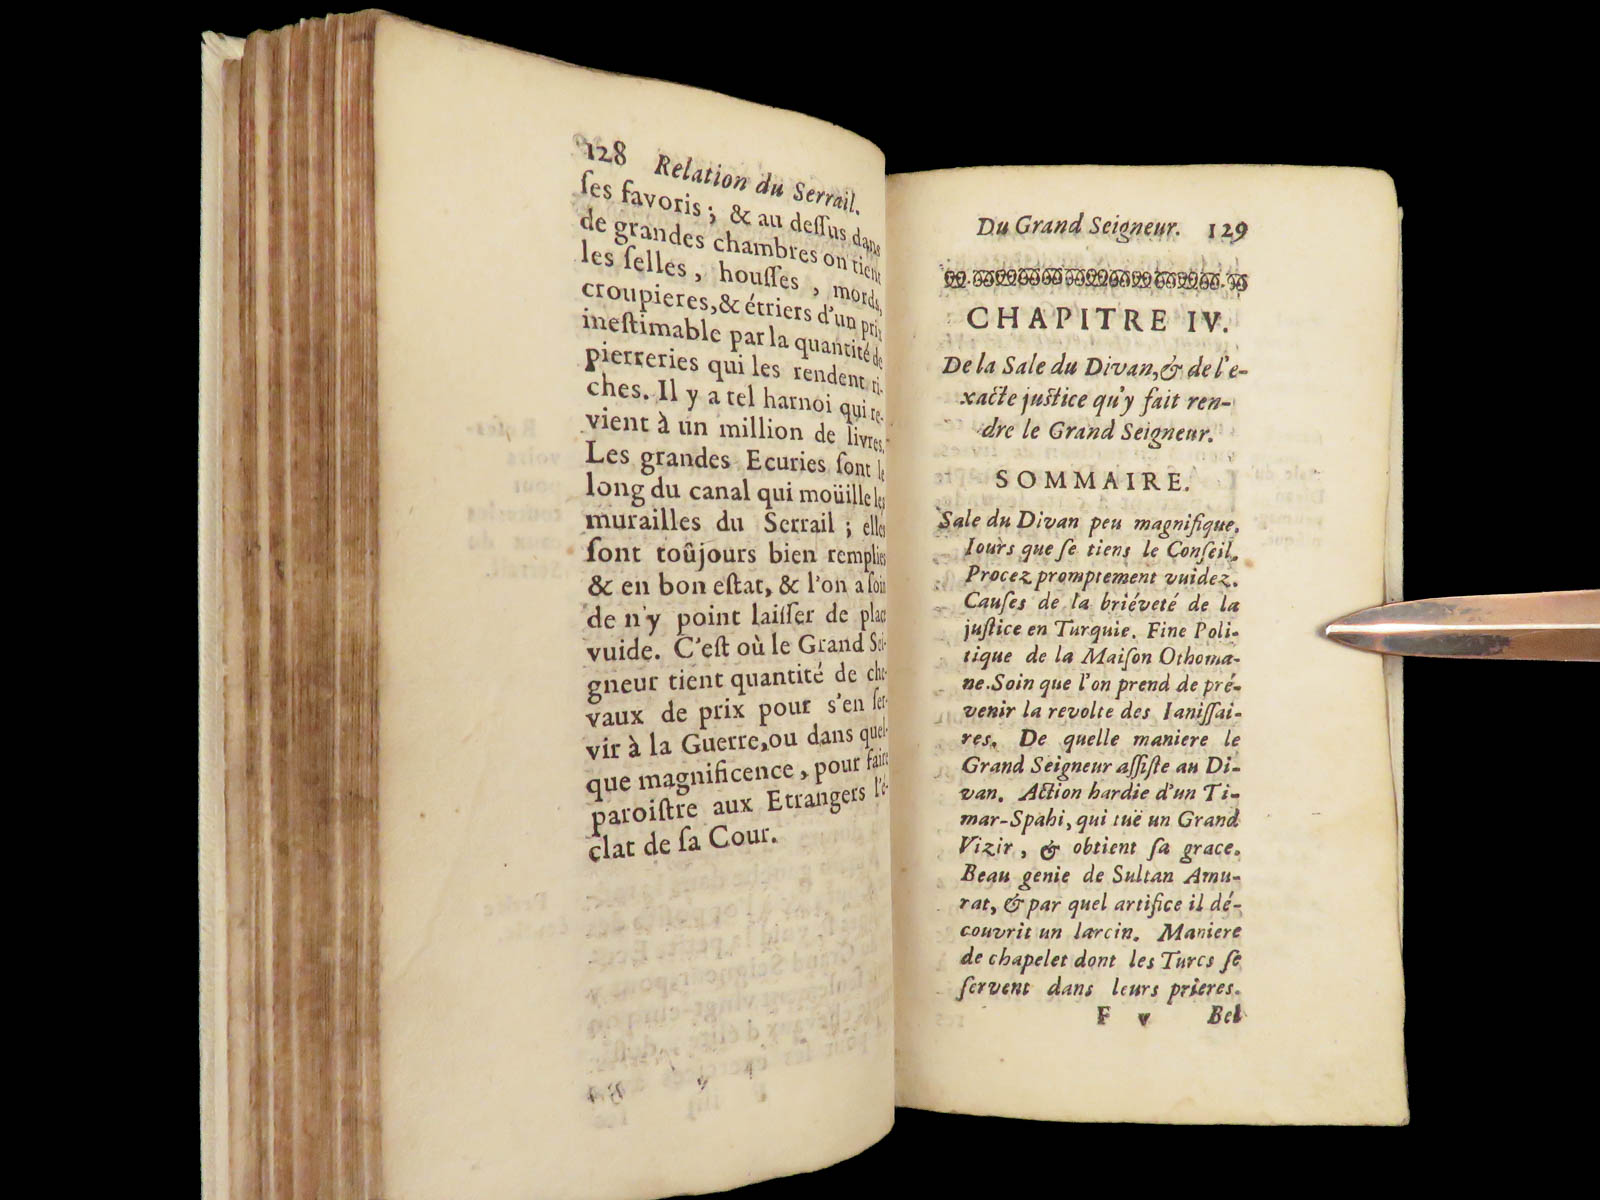 128 Relation du Serrail.
ſes favoris ; & au deſſus dans
de grandes chambres on tient
les ſelles , houſſes , mords,
croupieres, & étriers d'un prix
ineſtimable par la quantité de
pierreries qui les rendent ri-
ches. Il y a tel harnoi qui re-
vient à un million de livres.
Les grandes Ecuries ſont le
long du canal qui moüille les
murailles du Serrail ; elles
ſont toûjours bien remplies
& en bon eſtat, & l'on a ſoin
de n'y point laiſſer de place
vuide. C'eſt où le Grand Sei-
gneur tient quantité de che-
vaux de prix pour s'en ſer-
vir à la Guerre, ou dans quel-
que magnificence , pour faire
paroiſtre aux Etrangers l'é-
clat de ſa Cour.
Du Grand Seigneur. 129
CHAPITRE IV.
De la Sale du Divan, & de l'e-
xacte juſtice qu'y fait ren-
dre le Grand Seigneur.
SOMMAIRE.
Sale du Divan peu magnifique.
Iours que ſe tiens le Conſeil.
Procez promptement vuidez.
Cauſes de la briéveté de la
juſtice en Turquie. Fine Poli-
tique de la Maiſon Othoma-
ne. Soin que l'on prend de pré-
venir la revolte des Ianiſſai-
res. De quelle maniere le
Grand Seigneur aſſiſte au Di-
van. Action hardie d'un Ti-
mar-Spahi, qui tuë un Grand
Vizir , & obtient ſa grace.
Beau genie de Sultan Amu-
rat, & par quel artifice il dé-
couvrit un larcin. Maniere
de chapelet dont les Turcs ſe
ſervent dans leurs prieres.
F v Bel